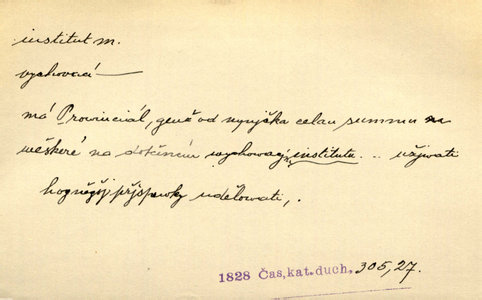 institut m.
vychovací —
má Provinciál, genž od nynjška celau summu
weškeré na dotčeném wychowacý institutu... užjwati
hogněgšj přjspěwky udělowati,.
1828 Čas, kat. duch, 305,27.